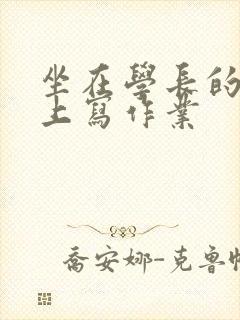 坐在學長的
上寫作業
喬安娜-克魯